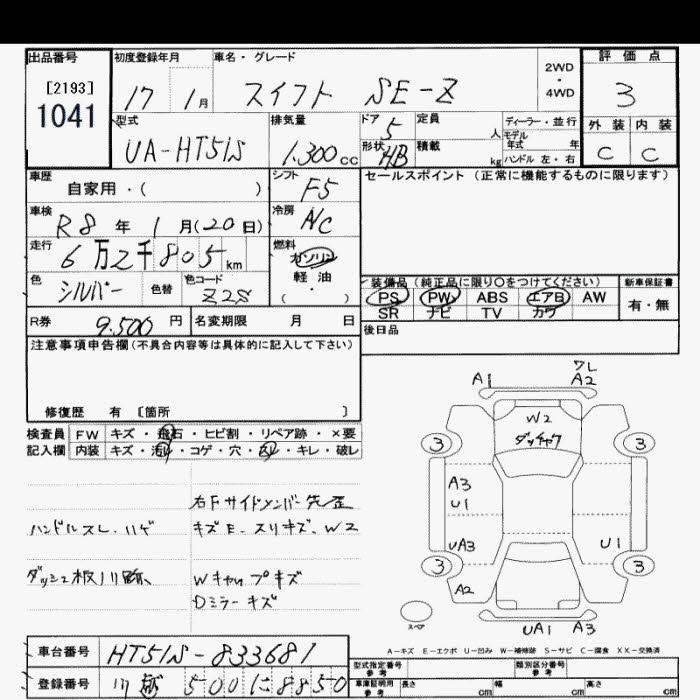 出品番号
[2193]
1041
初度登録年月
17 1月
車名・グレード
スイフト SE-Z
2WD
・
4WD
評価点
3
外装 内装
C C
型式
UA-HT51S
排気量
1.300cc
ドア
5
形状
HB
定員
人
積載
kg
ディーラー・並行
モデル
年式 年
ハンドル 左・右
車歴
自家用・( )
シフト
F5
車検
R8年1月(20日)
冷房
A/C
走行
6万2千805km
燃料
ガソリン
軽油
( )
色
シルバー
色替
色コード
Z2S
セールスポイント(正常に機能するものに限ります)
装備品(純正品に限り〇をつけてください)
PS PW ABS エアB AW
SR ナビ TV カワ
新車保証書
有・無
R券
9.500円
名変期限 月 日
後日品
注意事項申告欄(不具合内容等は具体的に記入して下さい)
修復歴 有 〔箇所 〕
検査員 FW キズ・飛石・ヒビ割・リペア跡・×要
記入欄 内装 キズ・汚れ・コゲ・穴・凹・キレ・破レ
右Fサイドメンバー先歪
ハンドルスレ.ハゲ
キズE.スリキズ.W2
ダッシュ板ハリ跡
Wキャップキズ
Dミラーキズ
A1
ワレ
A2
W2
ダッチャク
3 3
A3
U1
UA3
U1
3 3
A2
スペア
UA1 A3
A-キズ E-エクボ U-凹み W-補修跡 S-サビ C-腐食 XX-交換済
車台番号
HT51S-833681
登録番号
川越 500 に 8850
型式指定番号
参考
類別区分番号
参考
車庫証明用
参考
長さ cm 幅 cm 高さ cm